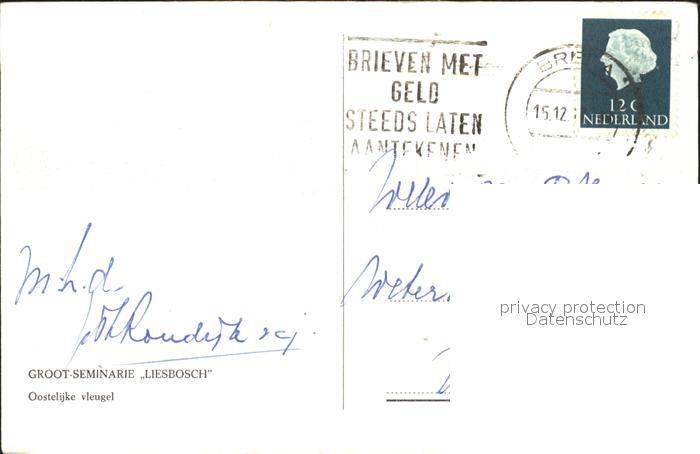 BRIEVEN MET
GELD
STEEDS LATEN
AANTEKENEN
BRE
15.12.
12 C
NEDERLAND
Weter.
privacy protection
Datenschutz
m.h.d.
GROOT-SEMINARIE „LIESBOSCH”
Oostelijke vleugel